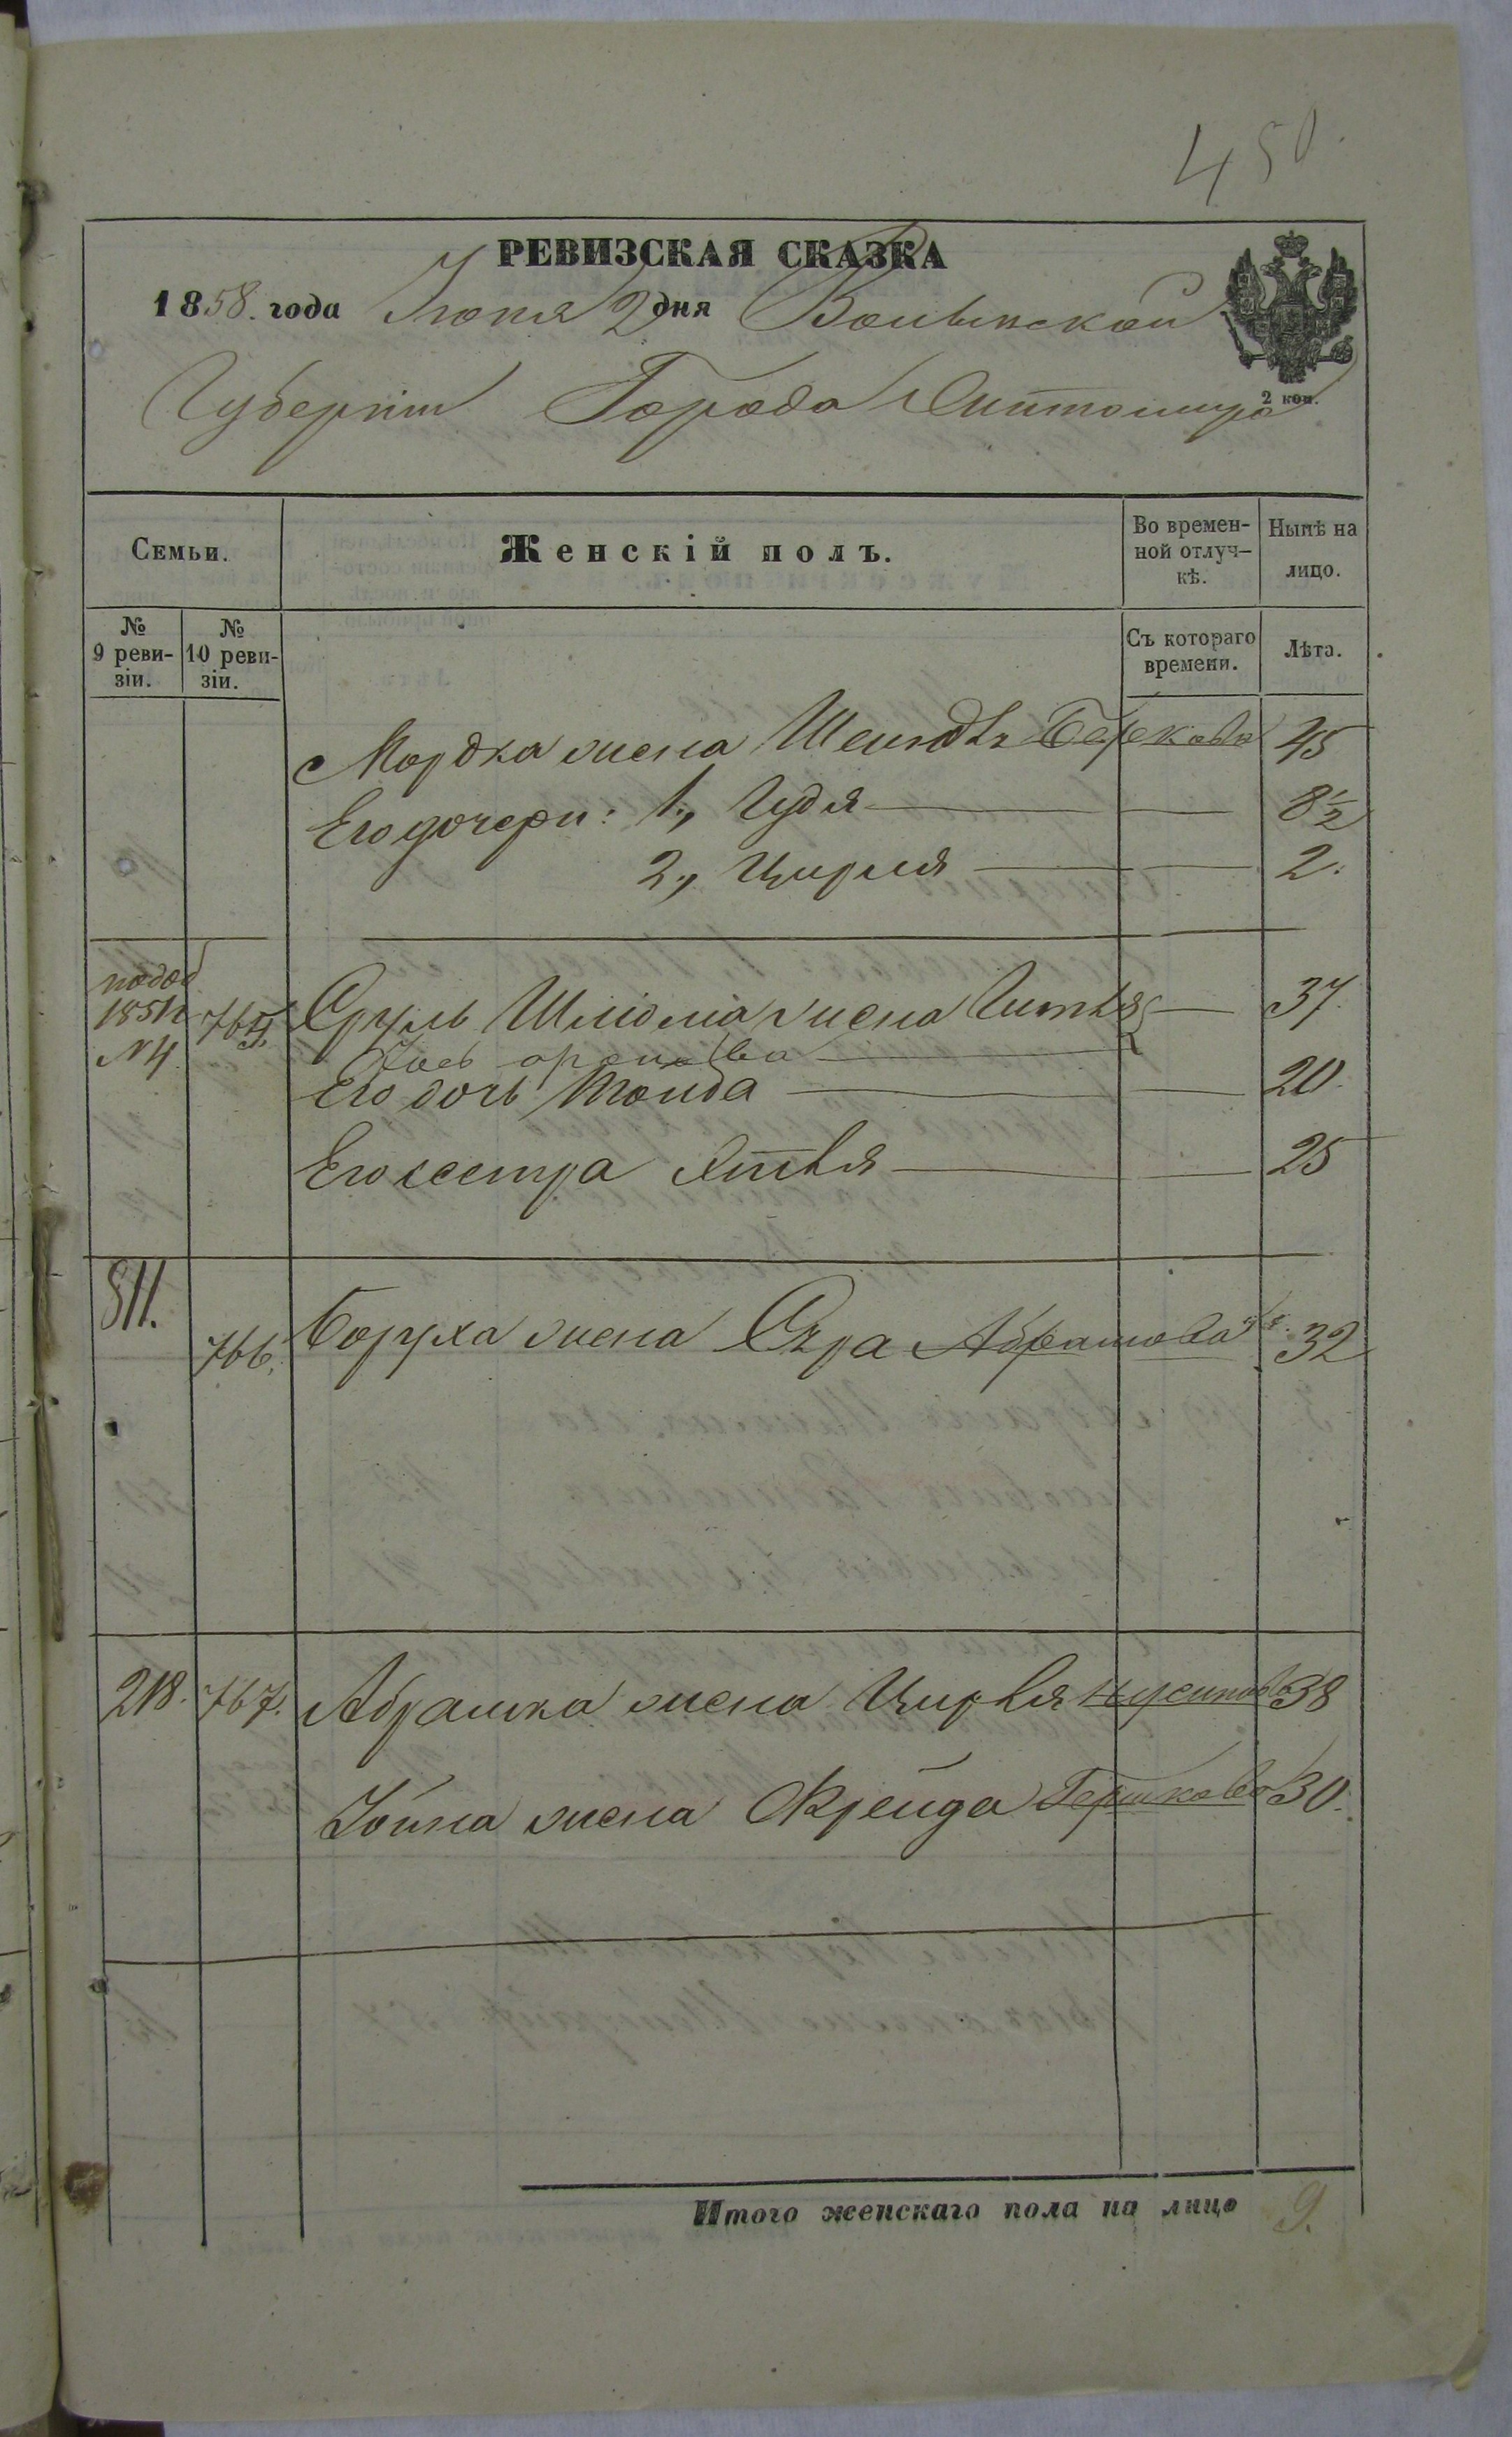 450.
РЕВИЗСКАЯ СКАЗКА
1858. года Іюня 2 дня Волынской
Губерніи Города Житомира
2 коп.
Семьи.
Женскій полъ.
Во времен-
ной отлуч-
кѣ.
Нынѣ на
лицо.
№
9 реви-
зіи.
№
10 реви-
зіи.
Съ котораго
времени.
Лѣта.
Мордка жена Шейндля Беркова 45
Его дочери: 1., Гудя 8½
2., Цирля 2.
1851
N 4 765. Сруль Шлиома жена Гитля 37.
Его дочь Тойба 20.
Его сестра Этля 25
811. 766. Боруха жена Сура Абрамова 32
218. 767. Абрамка жена Цирля Нусинова 38
Іойна жена Фрейда Гершкова 30.
Итого женскаго пола на лицо 9.